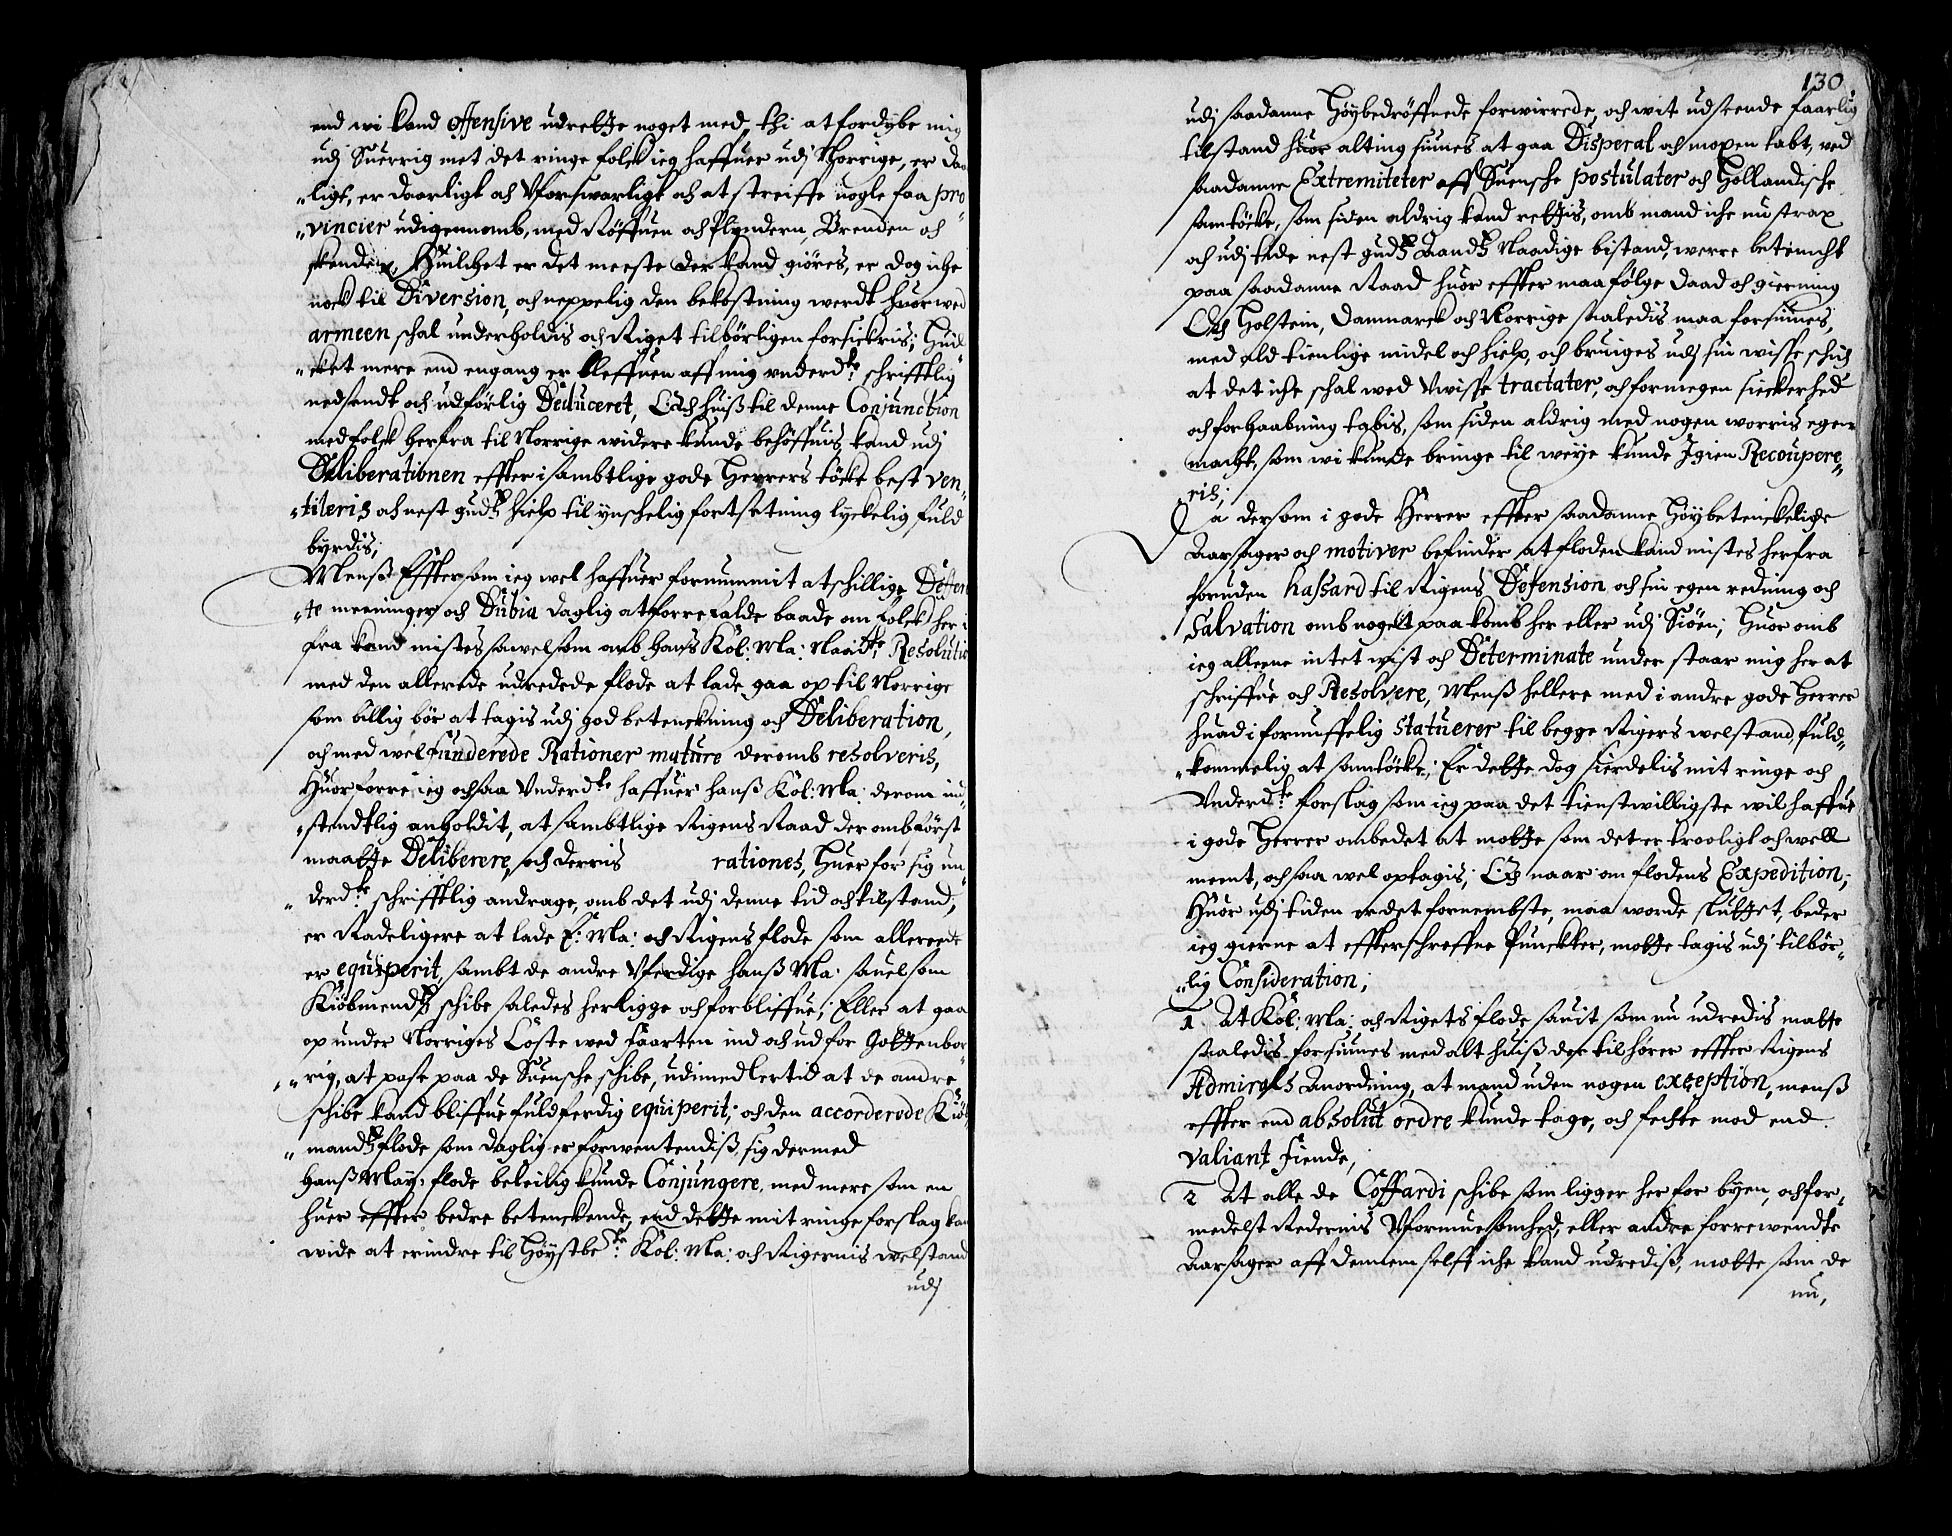 end wi kand offensive udrette noget med, thi at fordybe mig
udj Suerrig met det ringe folck ieg haffuer udj Norrige, er daa
„ligt, er daarligt och Vforswarligt och at streiffe nogle faa pro„
„vincier udigennomb, med Röffuen och Plyndern, Brenden och
skenden, Huilchet er det meeste der kand giöres, er dog iche
nock til Diversion, och neppelig den bekostning werdt huor wed
armeen schal underholdis och Riget tilbörligen forsickris; Huil„
„cket mere end engang er bleffuen aff mig underdte: schrifftlig
nedsendt och udförlig Deduceret, Och huiß til denne Conjunction
med folck herfra til Norrige widere kunde behöffuis, kand udj
Deliberationen effter i sambtlige gode Herrers töcke best ven„
„tileris och nest gudß hielp til ynschelig fortsetning lyckelig fuld
byrdis;
Menß Efftersom ieg wel haffuer fornummit atschillige Differen
„te meeninger och Dubia daglig at forrefalde baade om folck her i
fra kand mistes sawelsom omb hans Kol: Ma: Naadte: Resolutio
med den allerede udredede flode at lade gaa op til Norrige
som billig bör at tagis udj god betenckning och Deliberation,
och med wel funderede Rationer mature deromb resolveris,
Huorforre ieg ochsaa Vnderdte haffuer hanß Kol: Ma: derom ind„
„stendtlig anholdit, at sambtlige Rigens Raad deromb först
maatte Deliberere, och derris rationes, huer for sig un„
„derdte: schrifftlig andrage, omb det udj denne tid och tilstand,
er Radeligere at lade E: Ma: och Rigens flode som allereede
er equiperit, sambt de andre Vferdige hanß Ma: sauelsom
Kiöbmendß schibe saledes her ligge och forbliffue; Eller at gaa
op under Norriges Cöste wed faarten ind och ud for Gottenbor„
„rig, at pase paa de Suensche schibe, udimedlertid at de andre
schibe kand bliffue fuldferdig equiperit; och den accorderede Kiöb
„mandß flode som daglig er forwentendiß sig dermed
Hanß May: flode beleilig kunde Conjungere, med mere som en
huer effter bedre betenckende, end dette mit ringe forslag kan
wide at erindre til Höystbete: Kol: Ma: och Rigernis welstand
udj
130
udj saadanne Höybedröffuede forwirrede, och wit udseende faarlig
tilstand huor alting siunes at gaa Disperat och mopen tabt, wed
saadanne Extremiteter aff Suensche postulater och Hollandische
samtöcke, som siden aldrig kand rettis, omb mand iche nu strax
och udj tide nest gudß Aandß Naadige bistand, werre betencht
paa saadanne Raad huor effter maa fölge daad och gierning
Och Holstein, Danmarck och Norrige saaledis maa forsiunes,
med ald tienlige midel och hielp, och bruiges udj sin wisse schick
at det iche schal wed Vwisse tractater, och formegen sickerhed
och forhaabning tabis, som siden aldrig med nogen worris egen
macht, som wi kunde bringe til weye kunde Igien Recoupere„
„ris;
Da dersom i gode Herrer effter saadanne Höybetenckelige
Aarsager och motiver befinder at floden kand mistes herfra
foruden hassard til Rigens Defension och sin egen redning och
Salvation omb noget paa komb her eller udj Siöen; Huor omb
ieg alleene intet wist och Determinate under staar mig her at
schriffue och Resolvere, Menß hellere med i andre gode Herrer
huad i fornuffelig statuerer til begge Rigers welstand, fuld„
„kommelig at samtöcke; Er dette dog sierdelis mit ringe och
Vnderdte: forslag som ieg paa det tienstwilligste wil haffue
i gode Herrer ombedet at motte som det er trooligt och well
meent, ochsaa wel optagis; Och naar om flodens Expedition;
Huor udj tiden er det fornembste, maa worde sluttet, beder
ieg gierne at effterschreffne Punckter, motte tagis udj tilbör„
„lig Consideration;
1 At Kol: Ma: och Rigets flode sauit som nu udredis motte
saaledis forsiunes med alt huiß der tilhörer effter Rigens
Admirals Anordning, at mand uden nogen exception, menß
effter end absolut ordre kunde tage, och fechte mod end
valiant fiende,
2 At alle de Coffardi schibe som ligger her for byen, och for„
medelst Redernis Vformuesomhed, eller andre forrewendte
Aarsager aff dennem selff iche kand udrediß, motte som de
nu,